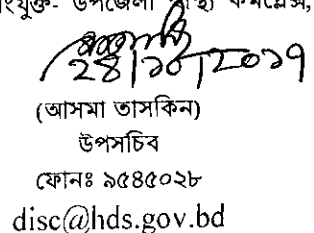 সংযুক্ত- উপজেলা স্বাস্থ্য কমপ্লেক্স,
28/১০/২০১৭
(আসমা তাসকিন)
উপসচিব
ফোনঃ ৯৫৪৫০২৮
disc@hds.gov.bd